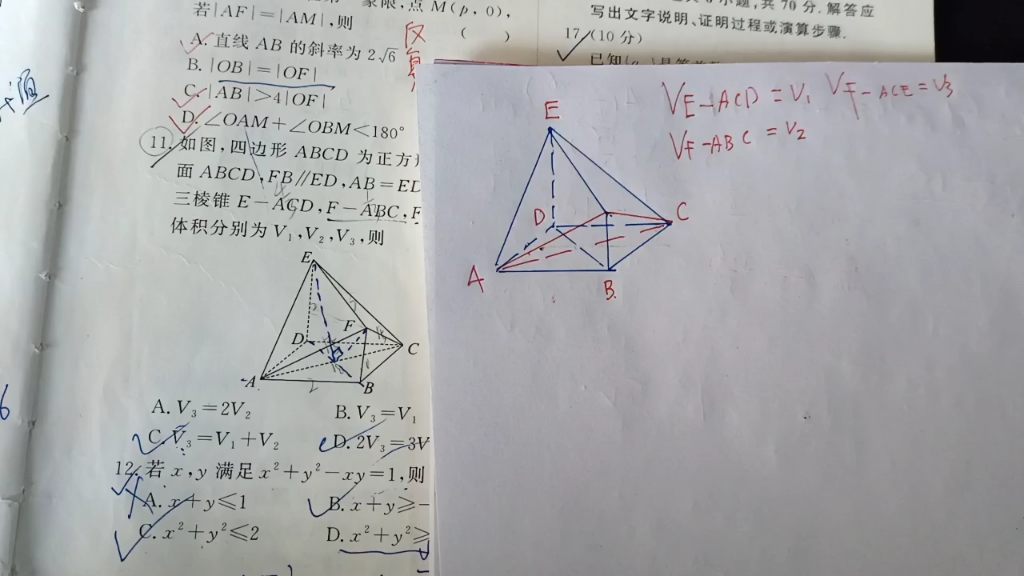 象限,点 M(p,0),
若|AF|=|AM|,则 ( )
A. 直线 AB 的斜率为 2√6
B. |OB|=|OF|
C. |AB|>4|OF|
D. ∠OAM+∠OBM<180°
11. 如图,四边形 ABCD 为正方
面 ABCD,FB∥ED,AB=ED
三棱锥 E-ACD,F-ABC,F
体积分别为 V₁,V₂,V₃,则
E
D
F
C
A
B
2
A. V₃=2V₂ B. V₃=V₁
C. V₃=V₁+V₂ D. 2V₃=3V
12. 若 x,y 满足 x²+y²-xy=1,则
A. x+y≤1 B. x+y≥-
C. x²+y²≤2 D. x²+y²≥
共 70 分. 解答应
写出文字说明、证明过程或演算步骤.
17. (10 分)
反
V_{E-ACD}=V₁ V_{F-ACE}=V₃
V_{F-ABC}=V₂
E
D
C
A
B